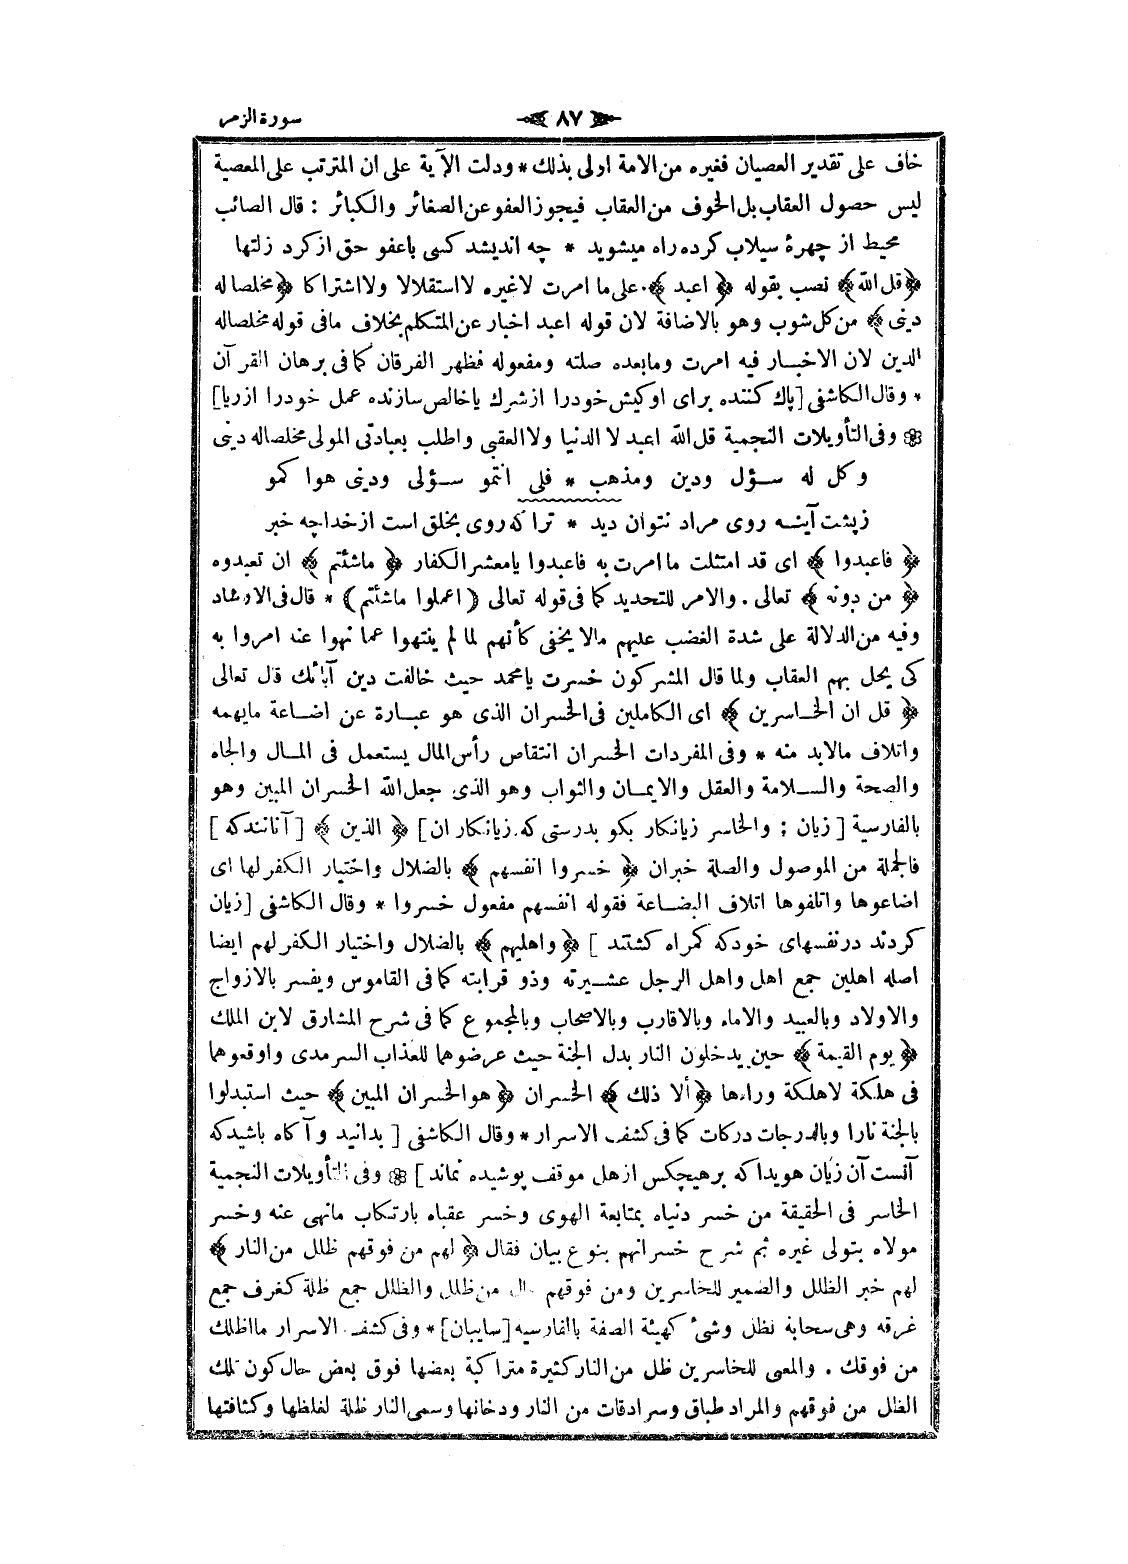 سورة الزمر ﴿ ٨٧ ﴾
خاف على تقدير العصيان فغيره من الامة اولى بذلك * ودلت الآية على ان المترتب على المعصية
ليس حصول العقاب بل الخوف من العقاب فيجوز العفو عن الصغائر والكبائر : قال الصائب
محيط از چهرهٔ سيلاب كرده راه ميشويد * چه انديشد كسى باعفو حق از كرد زلتها
﴿ قل الله ﴾ نصب بقوله ﴿ اعبد ﴾ على ما امرت لا غيره لا استقلالا ولا اشتراكا ﴿ مخلصا له
دينى ﴾ من كل شوب وهو بالاضافة لان قوله اعبد اخبار عن المتكلم بخلاف مافى قوله مخلصا له
الدين لان الاخبار فيه امرت ومابعده صلته ومفعوله فظهر الفرقان كما فى برهان القرآن
* وقال الكاشفى [ پاك كننده براى او كيش خودرا از شرك يا خالص سازنده عمل خودرا از ريا ]
وفى التأويلات النجمية قل الله اعبد لا الدنيا ولا العقبى واطلب بعبادتى المولى مخلصا له دينى
وكل له سؤل ودين ومذهب * فلى انتمو سؤلى ودينى هوا كمو
زپشت آينه روى مراد نتوان ديد * ترا كه روى بخلق است از خدا چه خبر
﴿ فاعبدوا ﴾ اى قد امتثلت ما امرت به فاعبدوا يا معشر الكفار ﴿ ماشئتم ﴾ ان تعبدوه
﴿ من دونه ﴾ تعالى . والامر للتحديد كما فى قوله تعالى ( اعملوا ماشئتم ) * قال فى الارشاد
وفيه من الدلالة على شدة الغضب عليهم مالا يخفى كأنهم لما لم ينتهوا عما نهوا عنه امروا به
كى يحل بهم العقاب ولما قال المشركون خسرت يا محمد حيث خالفت دين آبائك قال تعالى
﴿ قل ان الخاسرين ﴾ اى الكاملين فى الخسران الذى هو عبارة عن اضاعة مايهمه
واتلاف مالابد منه * وفى المفردات الخسران انتقاص رأس المال يستعمل فى المال والجاه
والصحة والسلامة والعقل والايمان والثواب وهو الذى جعل الله الخسران المبين وهو
بالفارسية [ زيان ; والخاسر زيانكار بكو بدرستى كه زيانكاران ] ﴿ الذين ﴾ [ آنانندكه ]
فالجملة من الموصول والصلة خبران ﴿ خسروا انفسهم ﴾ بالضلال واختيار الكفر لها اى
اضاعوها واتلفوها اتلاف البضاعة فقوله انفسهم مفعول خسروا * وقال الكاشفى [ زيان
كردند در نفسهاى خودكه كمراه كشتند ] ﴿ واهليهم ﴾ بالضلال واختيار الكفر لهم ايضا
اصله اهلين جمع اهل واهل الرجل عشيرته وذو قرابته كما فى القاموس ويفسر بالازواج
والاولاد وبالعبيد والاماء وبالاقارب وبالاصحاب وبالمجموع كما فى شرح المشارق لابن الملك
﴿ يوم القيمة ﴾ حين يدخلون النار بدل الجنة حيث عرضوهما للعذاب السرمدى واوقعوهما
فى هلكة لاهلكة وراءها ﴿ ألا ذلك ﴾ الخسران ﴿ هو الخسران المبين ﴾ حيث استبدلوا
بالجنة نارا وبالدرجات دركات كما فى كشف الاسرار * وقال الكاشفى [ بدانيد و آكاه باشيدكه
آنست آن زيان هويدا كه برهيچكس از هل موقف پوشيده نماند ] وفى التأويلات النجمية
الخاسر فى الحقيقة من خسر دنياه بمتابعة الهوى وخسر عقباه بارتكاب مانهى عنه وخسر
مولاه بتولى غيره ثم شرح خسرانهم بنوع بيان فقال ﴿ لهم من فوقهم ظلل من النار ﴾
لهم خبر الظلل والضمير للخاسرين ومن فوقهم من ظلل والظلل جمع ظلة كغرف جمع
غرفه وهى سحابة تظل وشئ كهيئة الصفة بالفارسيه [ سايبان ] * وفى كشف الاسرار ما اظلك
من فوقك . والمعنى للخاسرين ظل من النار كثيرة متراكبة بعضها فوق بعض حال كون تلك
الظل من فوقهم والمراد طباق وسرادقات من النار ودخانها وسمى النار ظلة لغلظها وكثافتها